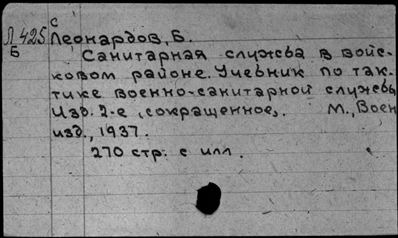 с
Л 425 Леонардов, Б.
Б
Санитарная служба в войс-
ковом районе. Учебник по так-
тике военно-санитарной службы
Изд. 2-е, сокращенное. М., Воен
изд., 1937.
270 стр. с илл.